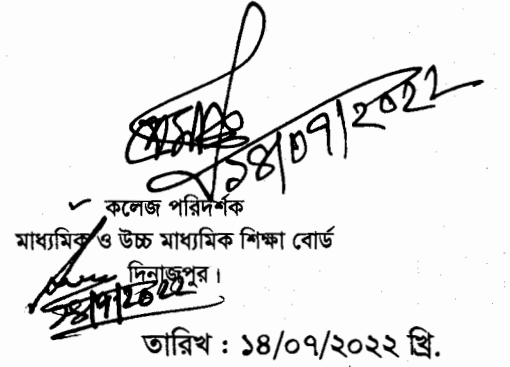 ১৪/০৭/২০২২
কলেজ পরিদর্শক
মাধ্যমিক ও উচ্চ মাধ্যমিক শিক্ষা বোর্ড
দিনাজপুর।
১৪/৭/২০২২
তারিখ : ১৪/০৭/২০২২ খ্রি.